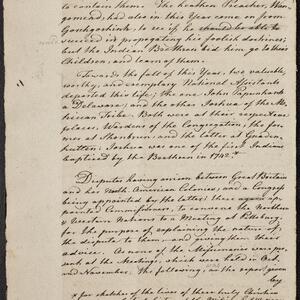 to contain them. The heathen Preacher, Wan-
gomend, had also in this Year come on from
Goschgoshink, to see if he should be able to
succeed in propagating his foolish doctrines;
but the Indian Brethren bid him go to their
Children, and learn of them.
Towards the fall of this Year, two valuable,
worthy, and exemplary National Assistants
departed this life; The one John Papunhank
a Delaware; and the other Joshua of the Mo-
hiccan Tribe. Both were at their respective
places, Wardens of the Congregation, the for-
mer at Shonbrun, and the latter at Gnaden-
hutten: Joshua was one of the first Indians
baptized by the Brethren in 1742.
Disputes having arisen between Great Britain
and her North American Colonies, and a Congress
being appointed by the latter; these again ap-
pointed Commissioners, to convene the Northern
& Western Nations to a Meeting at Pittsburg,
for the purpose of explaining the nature of
the dispute to them, and giving them their
advice. As some of the Missionaries were pre-
sent at the Meetings, which were held in Oct.
and November. The following, as the report given
by
x for sketches of the lives of these truly Christian